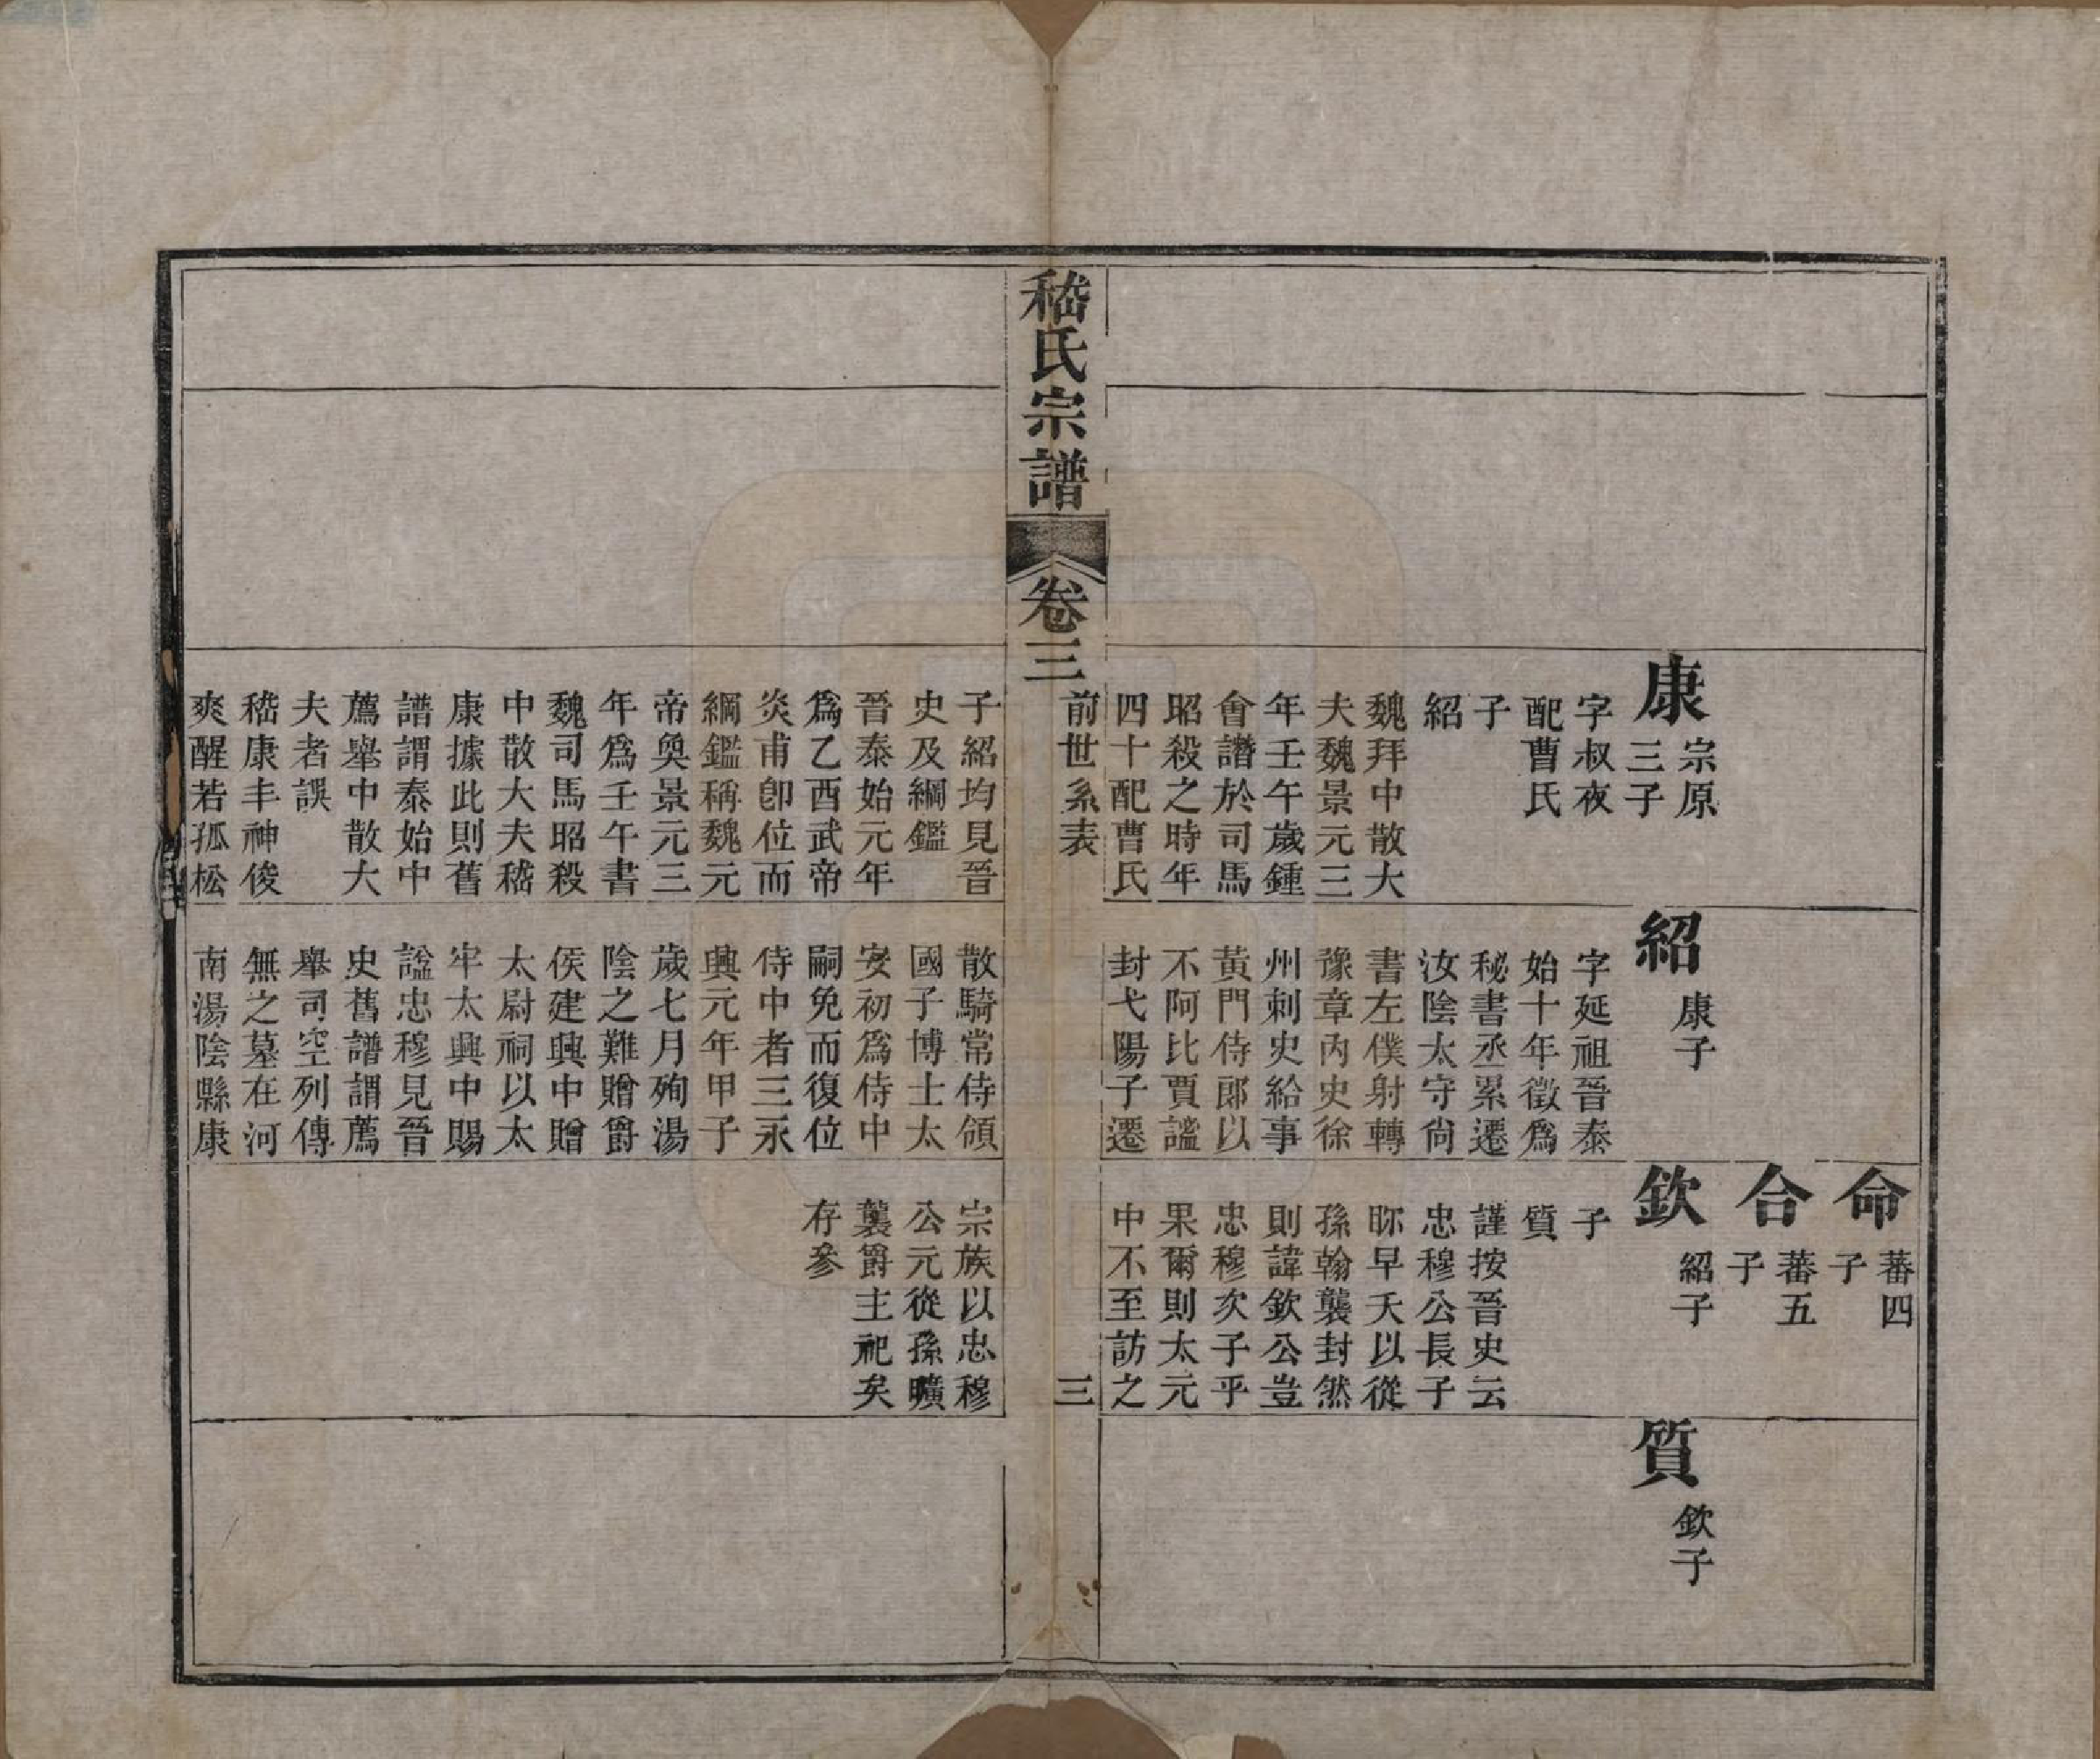 康
宗原
三子
字叔夜
配曹氏
子
紹
魏拜中散大
夫魏景元三
年壬午歲鍾
會譖於司馬
昭殺之時年
四十配曹氏
紹
康子
字延祖晉泰
始十年徵爲
秘書丞累遷
汝陰太守尙
書左僕射轉
豫章內史徐
州刺史給事
黃門侍郎以
不阿比賈謐
封弋陽子遷
命
蕃四
子
合
蕃五
子
欽
紹子
子
質
謹按晉史云
忠穆公長子
眎早夭以從
孫翰襲封然
則諱欽公豈
忠穆次子乎
果爾則太元
中不至訪之
質
欽子
嵇氏宗譜
卷三
前世系表
三
子紹均見晉
史及綱鑑
晉泰始元年
爲乙酉武帝
炎甫卽位而
綱鑑稱魏元
帝奐景元三
年爲壬午書
魏司馬昭殺
中散大夫嵇
康據此則舊
譜謂泰始中
薦舉中散大
夫者誤
嵇康丰神俊
爽醒若孤松
散騎常侍領
國子博士太
安初爲侍中
嗣免而復位
侍中者三永
興元年甲子
歲七月殉湯
陰之難贈爵
侯建興中贈
太尉祠以太
牢太興中賜
諡忠穆見晉
史舊譜謂薦
舉司空列傳
無之墓在河
南湯陰縣康
宗族以忠穆
公元從孫曠
襲爵主祀矣
存參